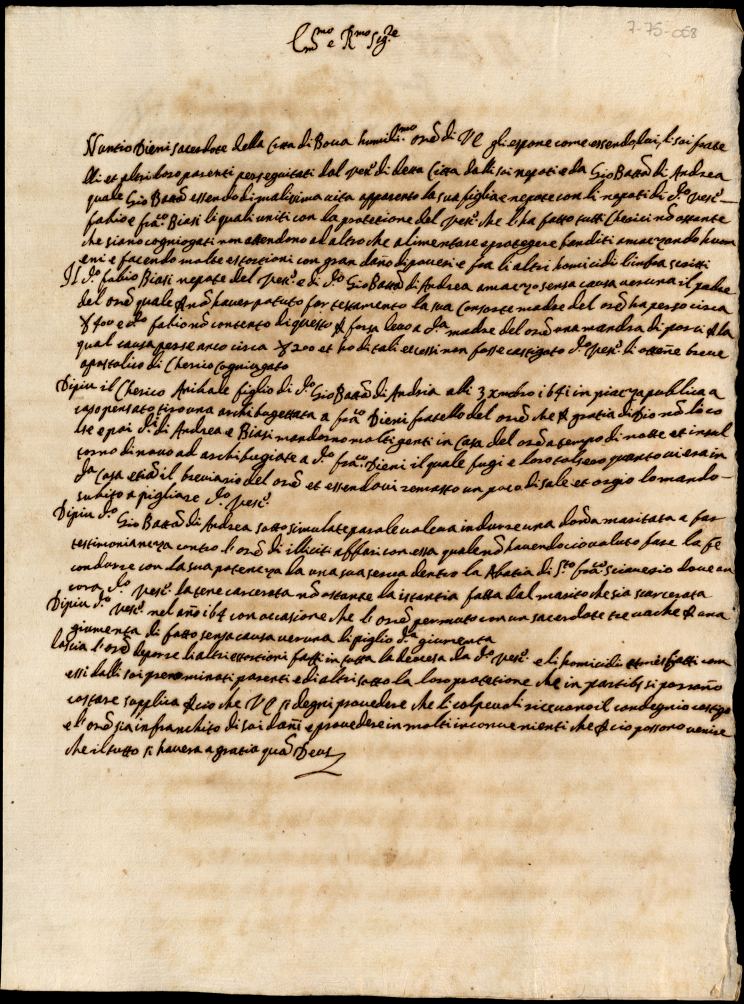 7-75-058
Em.mo e R.mo Sig.re
Nuntio Dieni sacerdote della Citta di Boua humiliss.mo ore di VE gli espone come essendo lui, li soi frate
lli et altri loro parenti perseguitati dal Vesc.o di detta Citta dalli soi nepoti e da Gio Batta di Andrea
quale Gio Batta essendo di malissima uita apparento la sua figlia e nepote con li nepoti di d.o Vesc.o
fabio e fra.co Biasi li quali uniti con la protetione del Vesc.o che li ha fatto tutti Cherici nõ ostante
che siano cogniogati non attendono ad altro che alimentare e protegere banditi amazzando huom
eni e facendo molte estortioni con gran daño di poueri e fra li altri homicidi l'infrascritti
Il d.o fabio Biasi nepote del Vesc.o e di d.o Gio Batta di Andrea amazzo senza causa ueruna il padre
del ore quale p nõ hauer potuto far testamento la sua Consorte madre del ore ha perso circa
400 e d.o fabio nõ contento di questo p forza leuo a d.a madre del ore una mandra di porci p la
qual causa perse anco circa 200 et ho di tali eccessi non fosse castigato d.o Vesc.o li ottñe breue
apostolico di Cherico Cogniogato
Dipiu il Cherico Anibale figlio di d.o Gio Batta di Andria alli 3 xmbro 1641 in piazza publica a
caso pensato tiro una archibugettata a fra.co Dieni fratello del ore che p gratia di Dio nõ lo co
lse e poi d.i di Andrea e Biasi mandorno molti genti in Casa del ore a tempo di notte et insul
torno di nouo ad archibugiate a d.o fra.co Dieni il quale fugi e loro tolsero quanto ui era in
d.a Casa etiã il breuiario del ore et essendoui remasto un poco di sale et orgio lo mando
subito a pigliare d.o Vesc.o
Dipiu d.o Gio Batta di Andrea sotto simulate parole uoleua indurre una dona maritata a far
testimonianza contro l'ore di illiciti affari con essa quale nõ hauendo cio uoluto fare la fe
condurre con la sua potenza da una sua serua dentro la Abatia di S.to fra.co Sciauerio doue an
cora d.o Vesc.o la tene carcerata nõ ostante la istantia fatta dal marito che sia scarcerata
Dipiu d.o Vesc.o nel año 164 con occasione che l'ore permuto con un sacerdote tre uache p una
giumenta di fatto senza causa ueruna li piglio d.a giumenta
lascia l'ore deporre li altri estortioni fatti in tutta la diocesa da d.o Vesc.o e li homicidii fatti com
essi dalli soi prenominati parenti e di altri sotto la loro protetione che in partibs si porrãno
costare supplica p cio che VE si degni prouedere che li colpeuoli riceuano il condegnio castigo
e l'ore sia infranchito di soi dañi e prouedere in molti inconuenienti che p cio possono uenire
che il tutto si hauera a gratia quã Deus